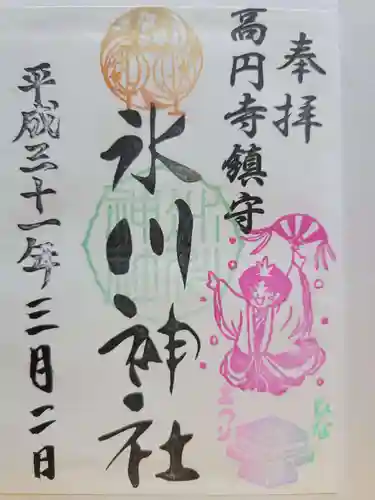 奉拝
高円寺鎮守
氷川神社
平成三十一年三月二日